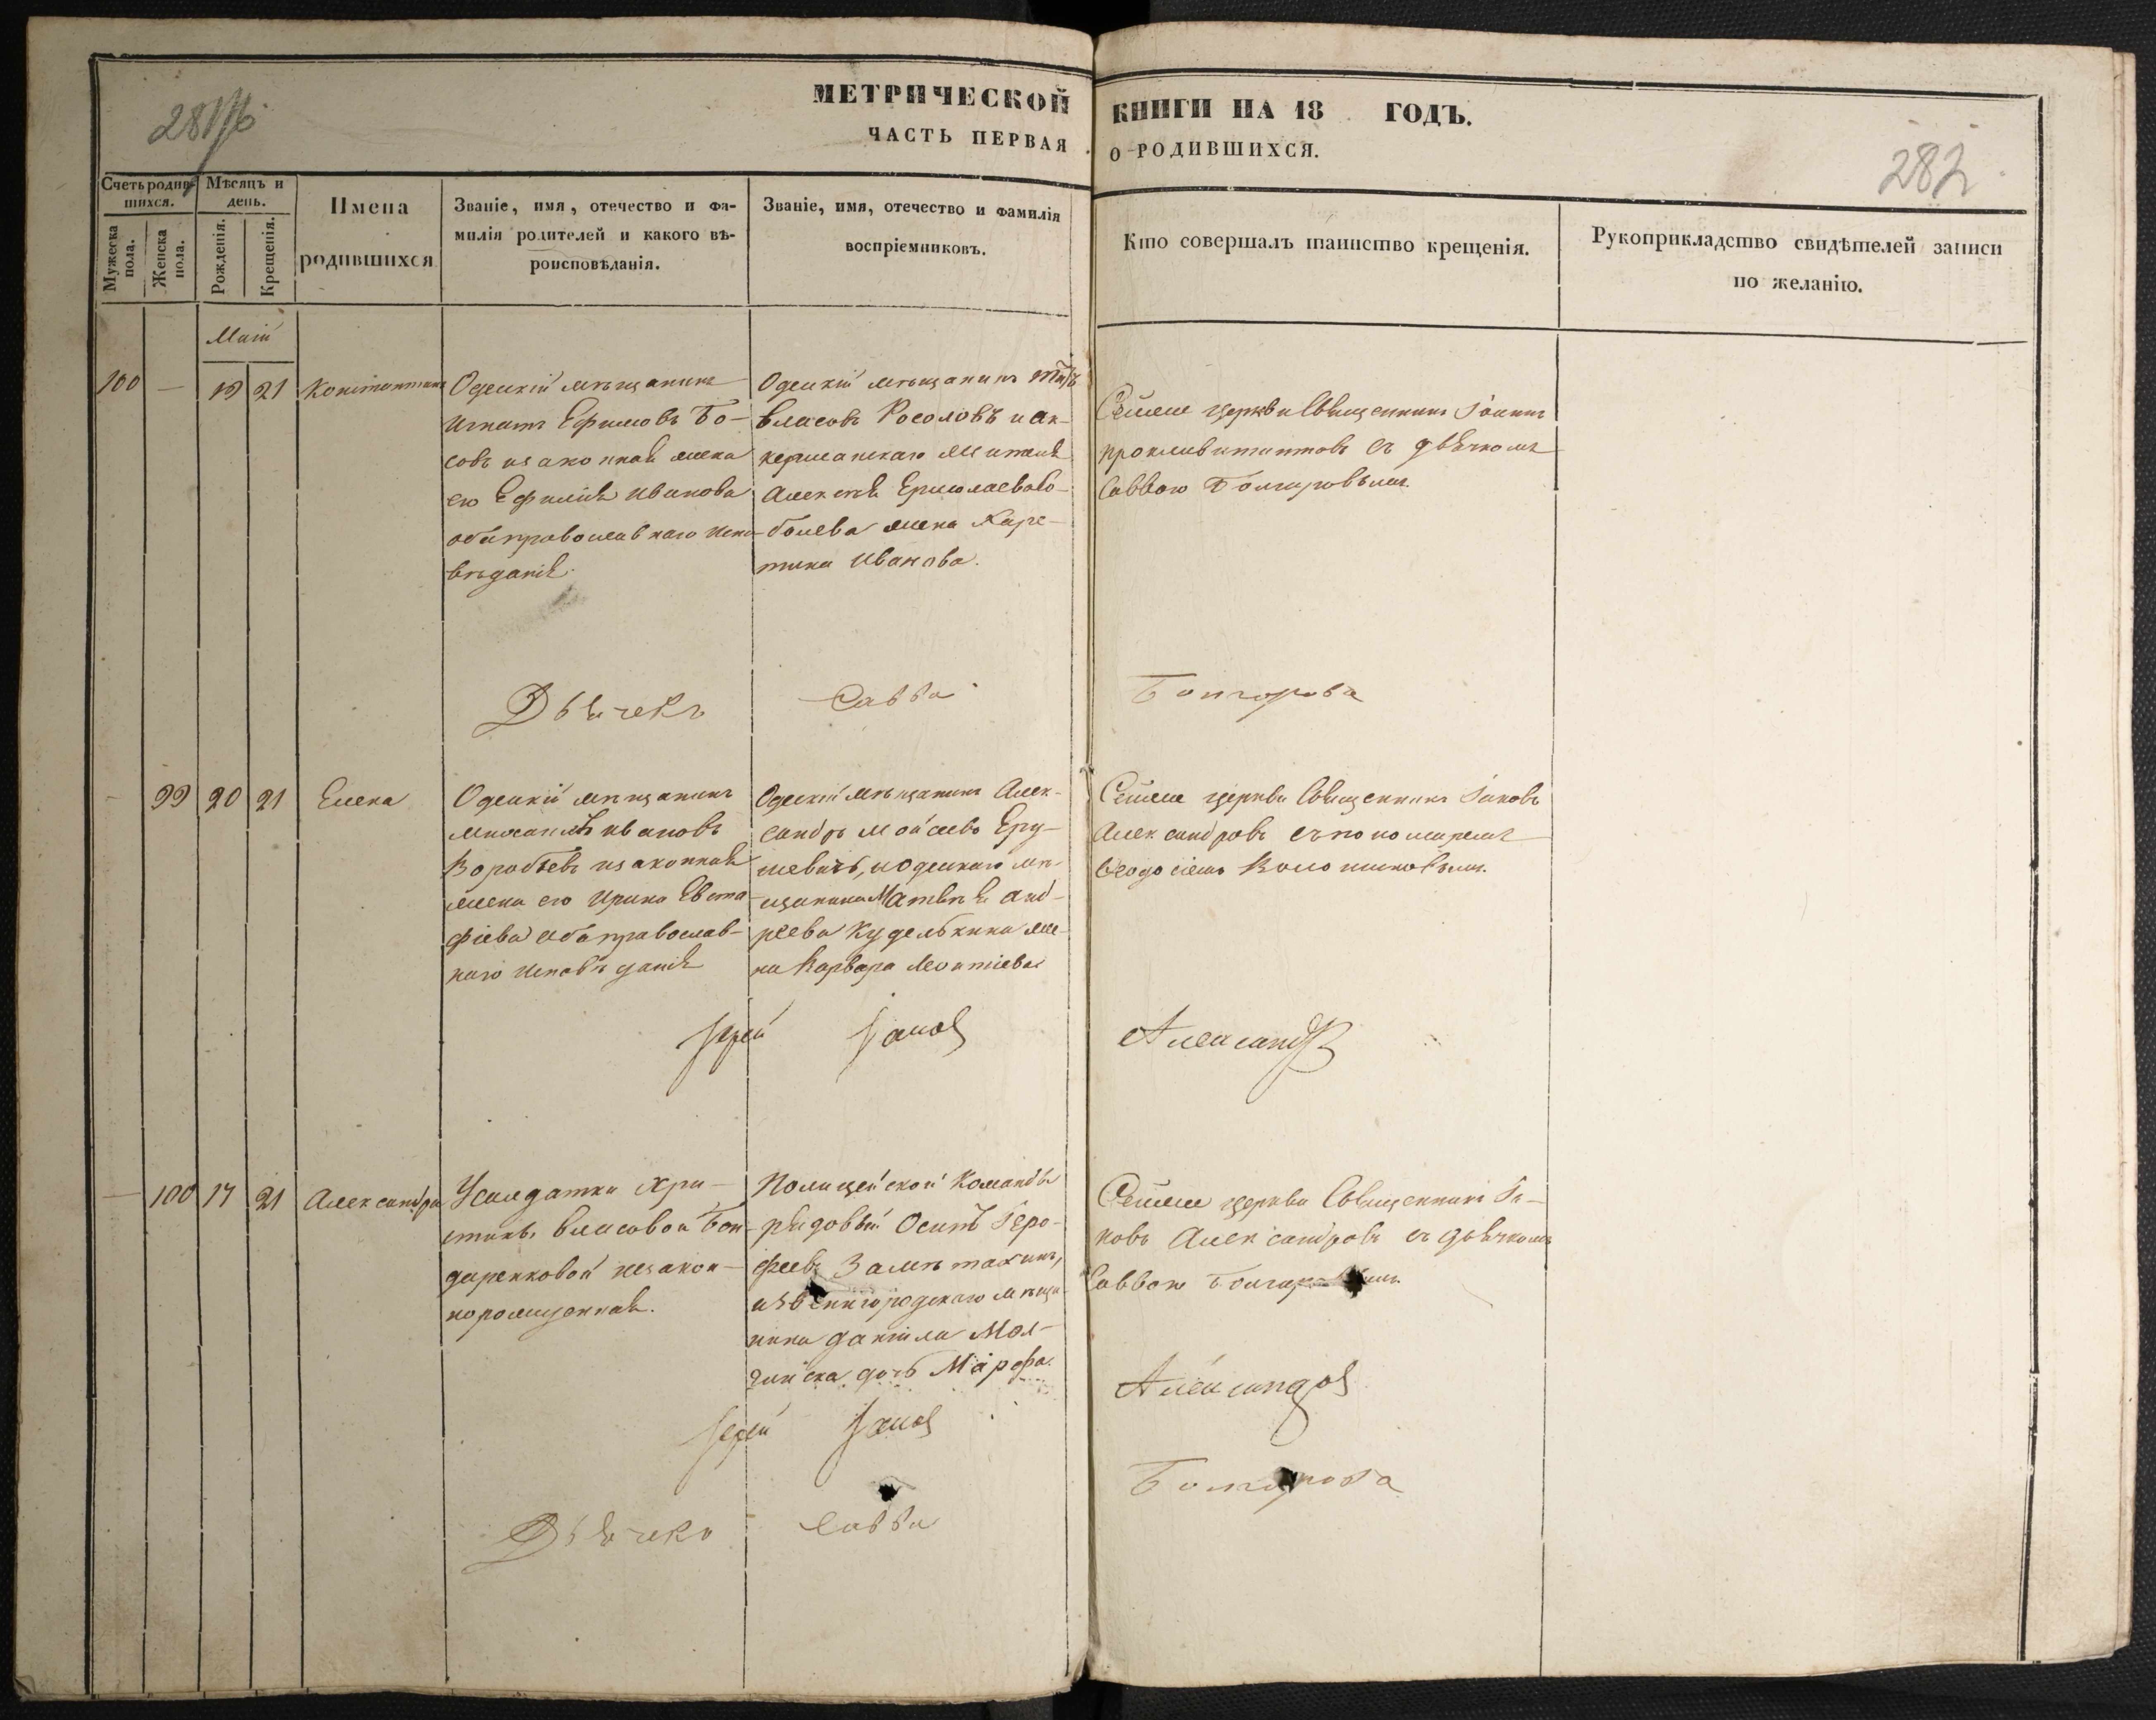 МЕТРИЧЕСКОЙ КНИГИ НА 18 ГОДЪ.
ЧАСТЬ ПЕРВАЯ О РОДИВШИХСЯ.
282
Счетъ родившихся.
Мужеска пола.
Женска пола.
Мѣсяцъ и день.
Рожденія.
Крещенія.
Имена
родившихся
Званіе, имя, отечество и фа-
милія родителей и какого вѣ-
роисповѣданія.
Званіе, имя, отечество и фамилія
воспріемниковъ.
Кто совершалъ таинство крещенія.
Рукоприкладство свидѣтелей записи
по желанію.
Маій
100 — 19 21 Константинъ
Одескій мѣщанинъ
Игнатъ Ефимовъ Бо-
совъ и законная жена
его Ефимія Иванова
оба православнаго испо-
вѣданія.
Одескій мѣщанинъ
Власовъ Росоловъ и ак-
керманскаго жителя
Алексѣя Ермолаева
жена
Иванова.
Сейже церкви Священникъ Іоаннъ
съ дьячкомъ
Саввою Болгаровымъ.
Дьячекъ Савва Болгарова
— 99 20 21 Елена
Одескій мѣщанинъ
Ивановъ
Воробьевъ и законная
жена его Ирина Евста-
фіева оба православ-
наго исповѣданія
Одескій мѣщанинъ Алек-
сандръ Мойсеевъ Еру-
шевичъ, и одескаго мѣ-
щанина Матвѣя Анд-
реева Куделькина же-
на Варвара Леонтіева
Сейже церкви Священникъ Іаковъ
Александровъ съ пономаремъ
Ѳеодосіемъ
Іерей Іаковъ Александровъ
— 100 17 21 Александра
У солдатки Хри-
стины Власовой Бон-
даренковой незакон-
норожденная.
Полицейской Команды
рядовый Осипъ
и звенигородскаго мѣща-
нина Даніила Мол-
дочь Марфа.
Сейже церкви Священникъ Іа-
ковъ Александровъ съ дьячкомъ
Саввою
Іерей Іаковъ Александровъ
Дьячекъ Савва Болгарова